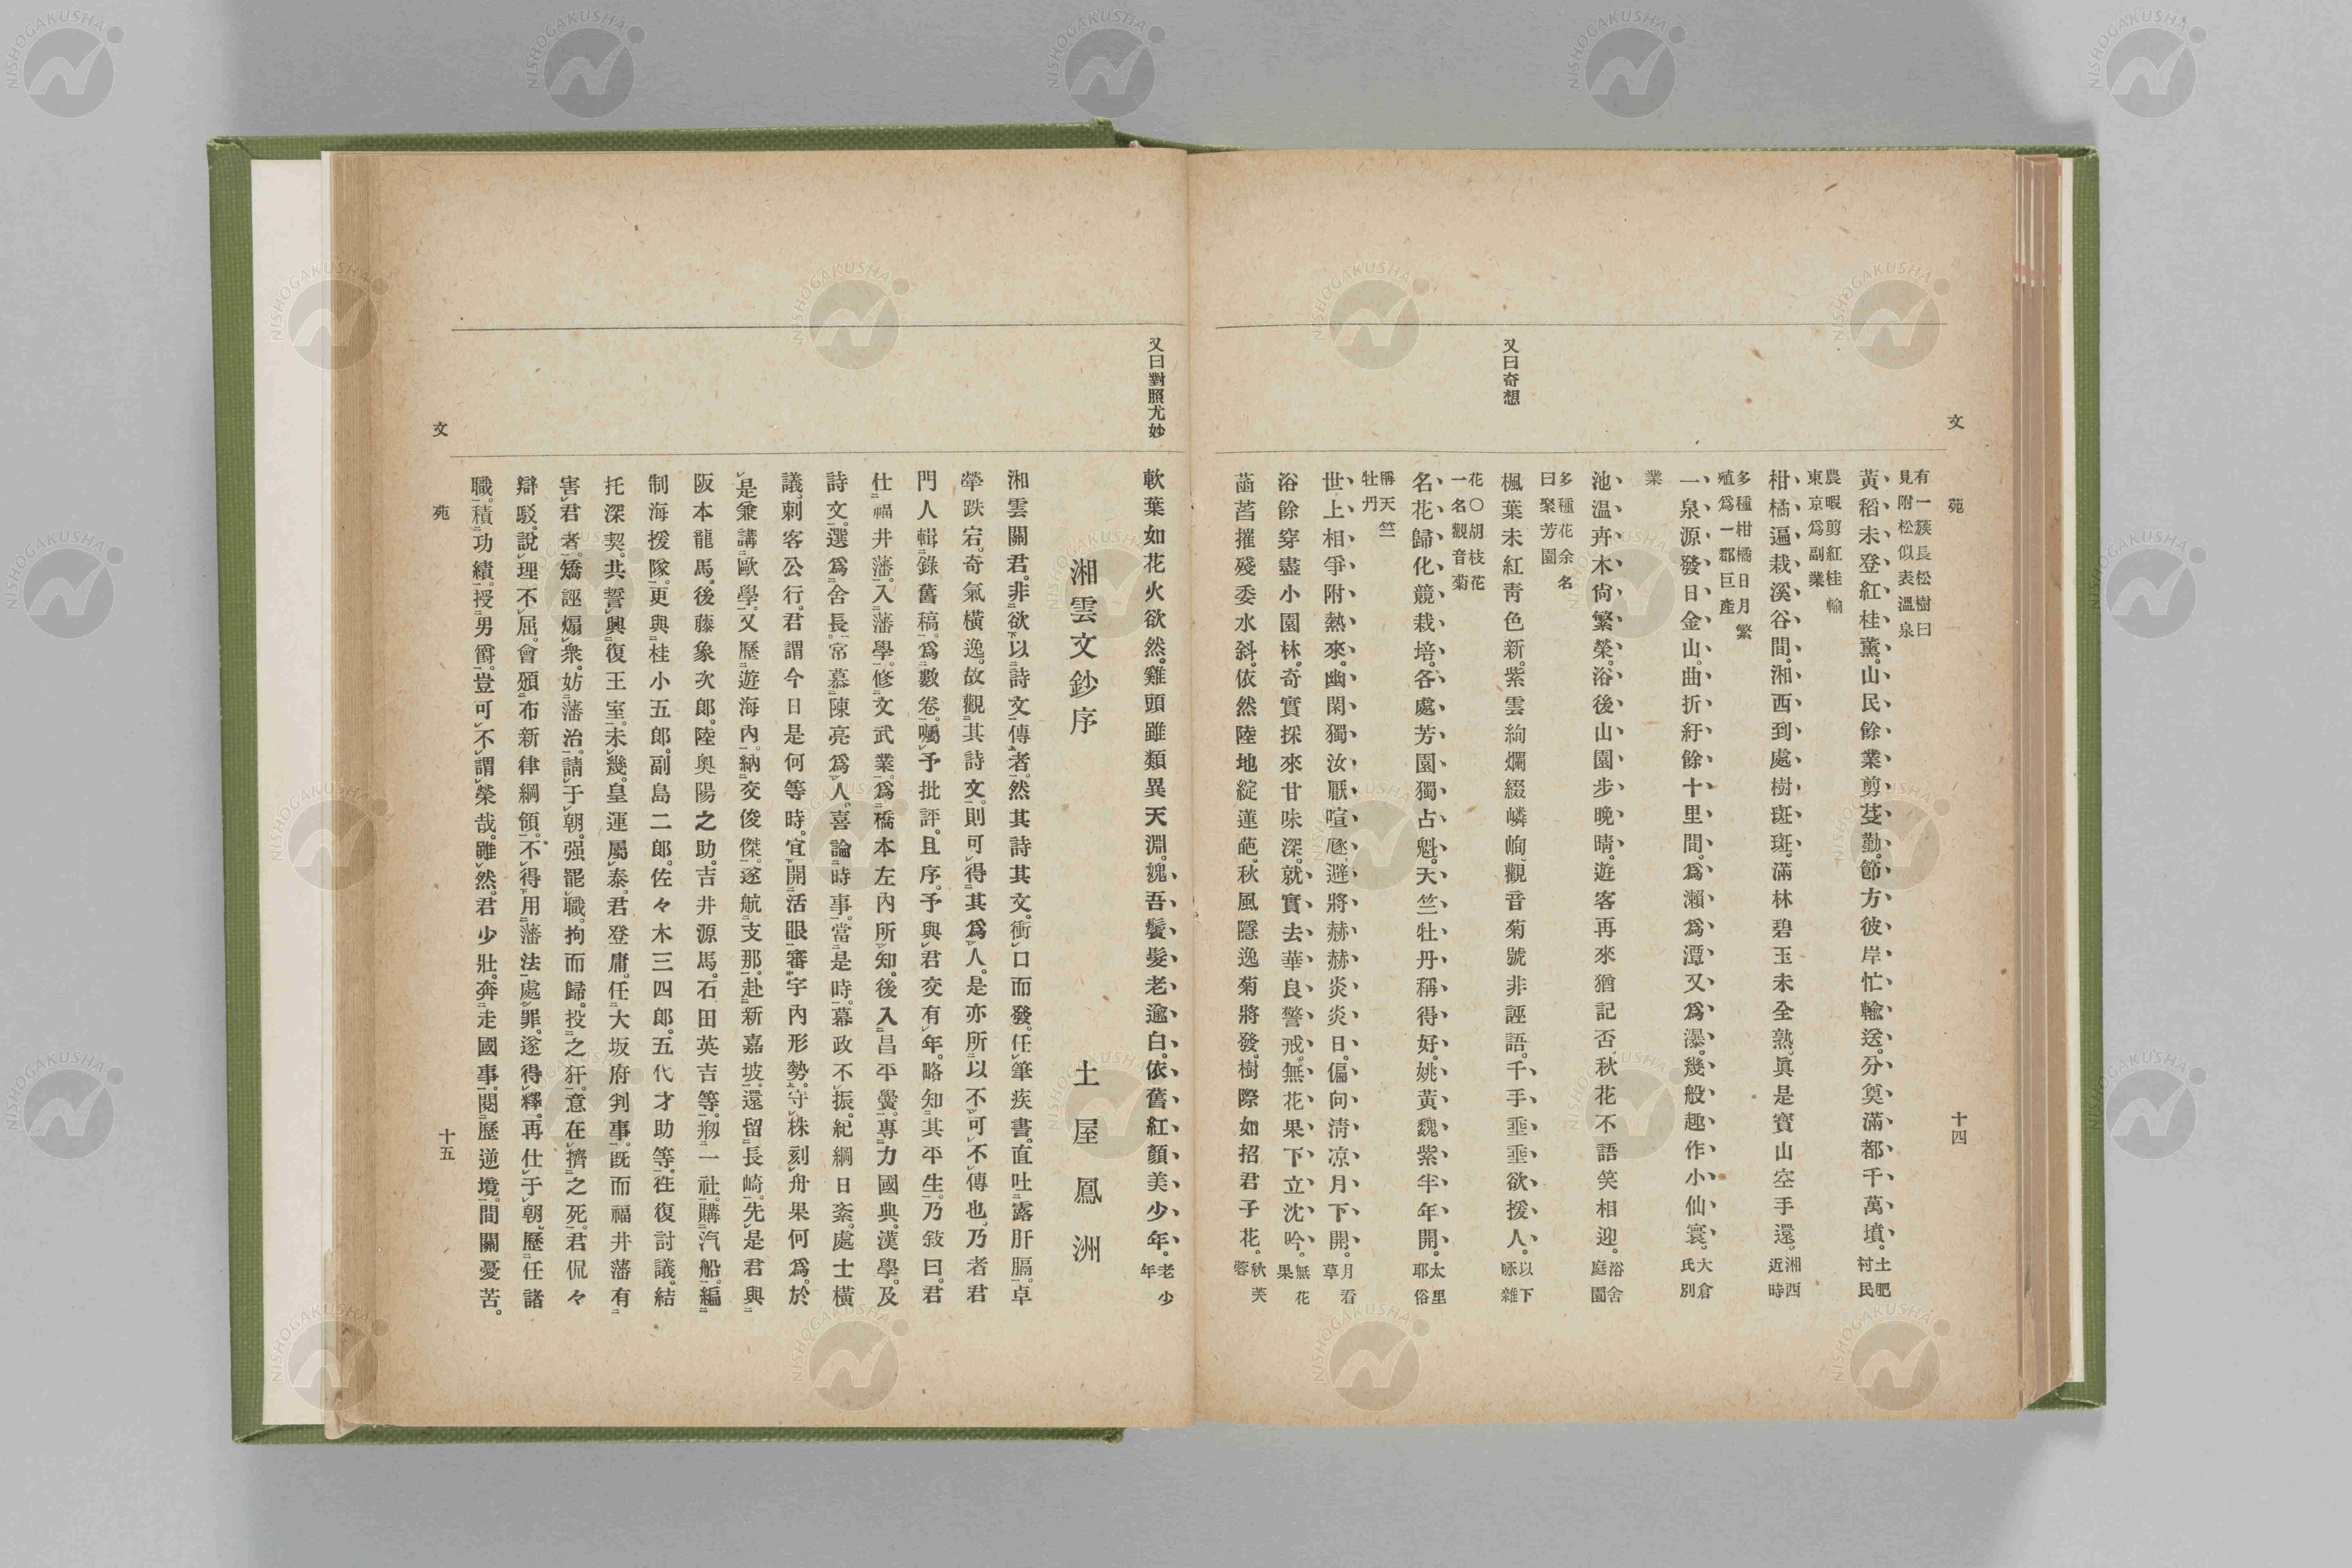 文苑
十四
有一簇長松樹曰
見附松似表溫泉
黃稻未登紅桂薰。山民餘業剪荾勤。節方彼岸忙輸送。分奠滿都千萬墳。土肥
村民
農暇剪紅桂輸
東京爲副業
柑橘遍栽溪谷間。湘西到處樹斑斑。滿林碧玉未全熟。眞是寳山空手還。湘西
近時
多種柑橘日月繁
殖爲一郡巨產
一泉源發日金山。曲折紆餘十里間。爲瀨爲潭又爲瀑。幾般趣作小仙寰。大倉
氏別
業
池溫卉木尙繁榮。浴後山園步晚晴。遊客再來猶記否。秋花不語笑相迎。浴舍
庭園
多種花余名
曰聚芳園
又曰奇想
楓葉未紅靑色新。紫雲絢爛綴嶙峋。觀音菊號非誣語。千手垂垂欲援人。以下
咏雜
花〇胡枝花
一名觀音菊
名花歸化競栽培。各處芳園獨占魁。天竺牡丹稱得好。姚黃魏紫半年開。太里
耶俗
稱天竺
牡丹
世上相爭附熱來。幽閑獨汝厭喧豗。避將赫赫炎炎日。偏向淸凉月下開。月看
草
浴餘穿盡小園林。奇實採來甘味深。就實去華良警戒。無花果下立沈吟。無花
果
菡萏摧殘委水斜。依然陸地綻蓮葩。秋風隱逸菊將發。樹際如招君子花。秋芙
蓉
又曰對照尤妙
軟葉如花火欲然。雞頭雖類異天淵。媿吾鬢髮老逾白。依舊紅顏美少年。老少
年
湘雲文鈔序
土屋鳳洲
湘雲關君。非欲以詩文傳者。然其詩其文。衝口而發。任筆疾書。直吐露肝膈。卓
犖跌宕。奇氣橫逸。故觀其詩文。則可得其爲人。是亦所以不可不傳也。乃者君
門人輯錄舊稿。爲數卷。囑予批評。且序。予與君交有年。略知其平生。乃敍曰。君
仕福井藩。入藩學。修文武業。爲橋本左內所知。後入昌平黌。專力國典。漢學。及
詩文。選爲舍長。常慕陳亮爲人。喜論時事。當是時。幕政不振。紀綱日紊。處士橫
議。刺客公行。君謂今日是何等時。宜開活眼審宇內形勢。守株刻舟果何爲。於
是兼講歐學。又歷遊海內。納交俊傑。遂航支那。赴新嘉坡。還留長崎。先是君與
阪本龍馬。後藤象次郎。陸奧陽之助。吉井源馬。石田英吉等。剏一社。購汽船。編
制海援隊。更與桂小五郎。副島二郎。佐々木三四郎。五代才助等。徃復討議。結
托深契。共誓興復王室。未幾。皇運屬泰。君登庸。任大坂府判事。旣而福井藩有
害君者。矯誣煽衆。妨藩治。請于朝。强罷職。拘而歸。投之犴。意在擠之死。君侃々
辯駁。說理不屈。會頒布新律綱領。不得用藩法處罪。遂得釋。再仕于朝。歷任諸
職。積功績。授男爵。豈可不謂榮哉。雖然。君少壯。奔走國事。閱歷逆境。間關憂苦。
文苑
十五